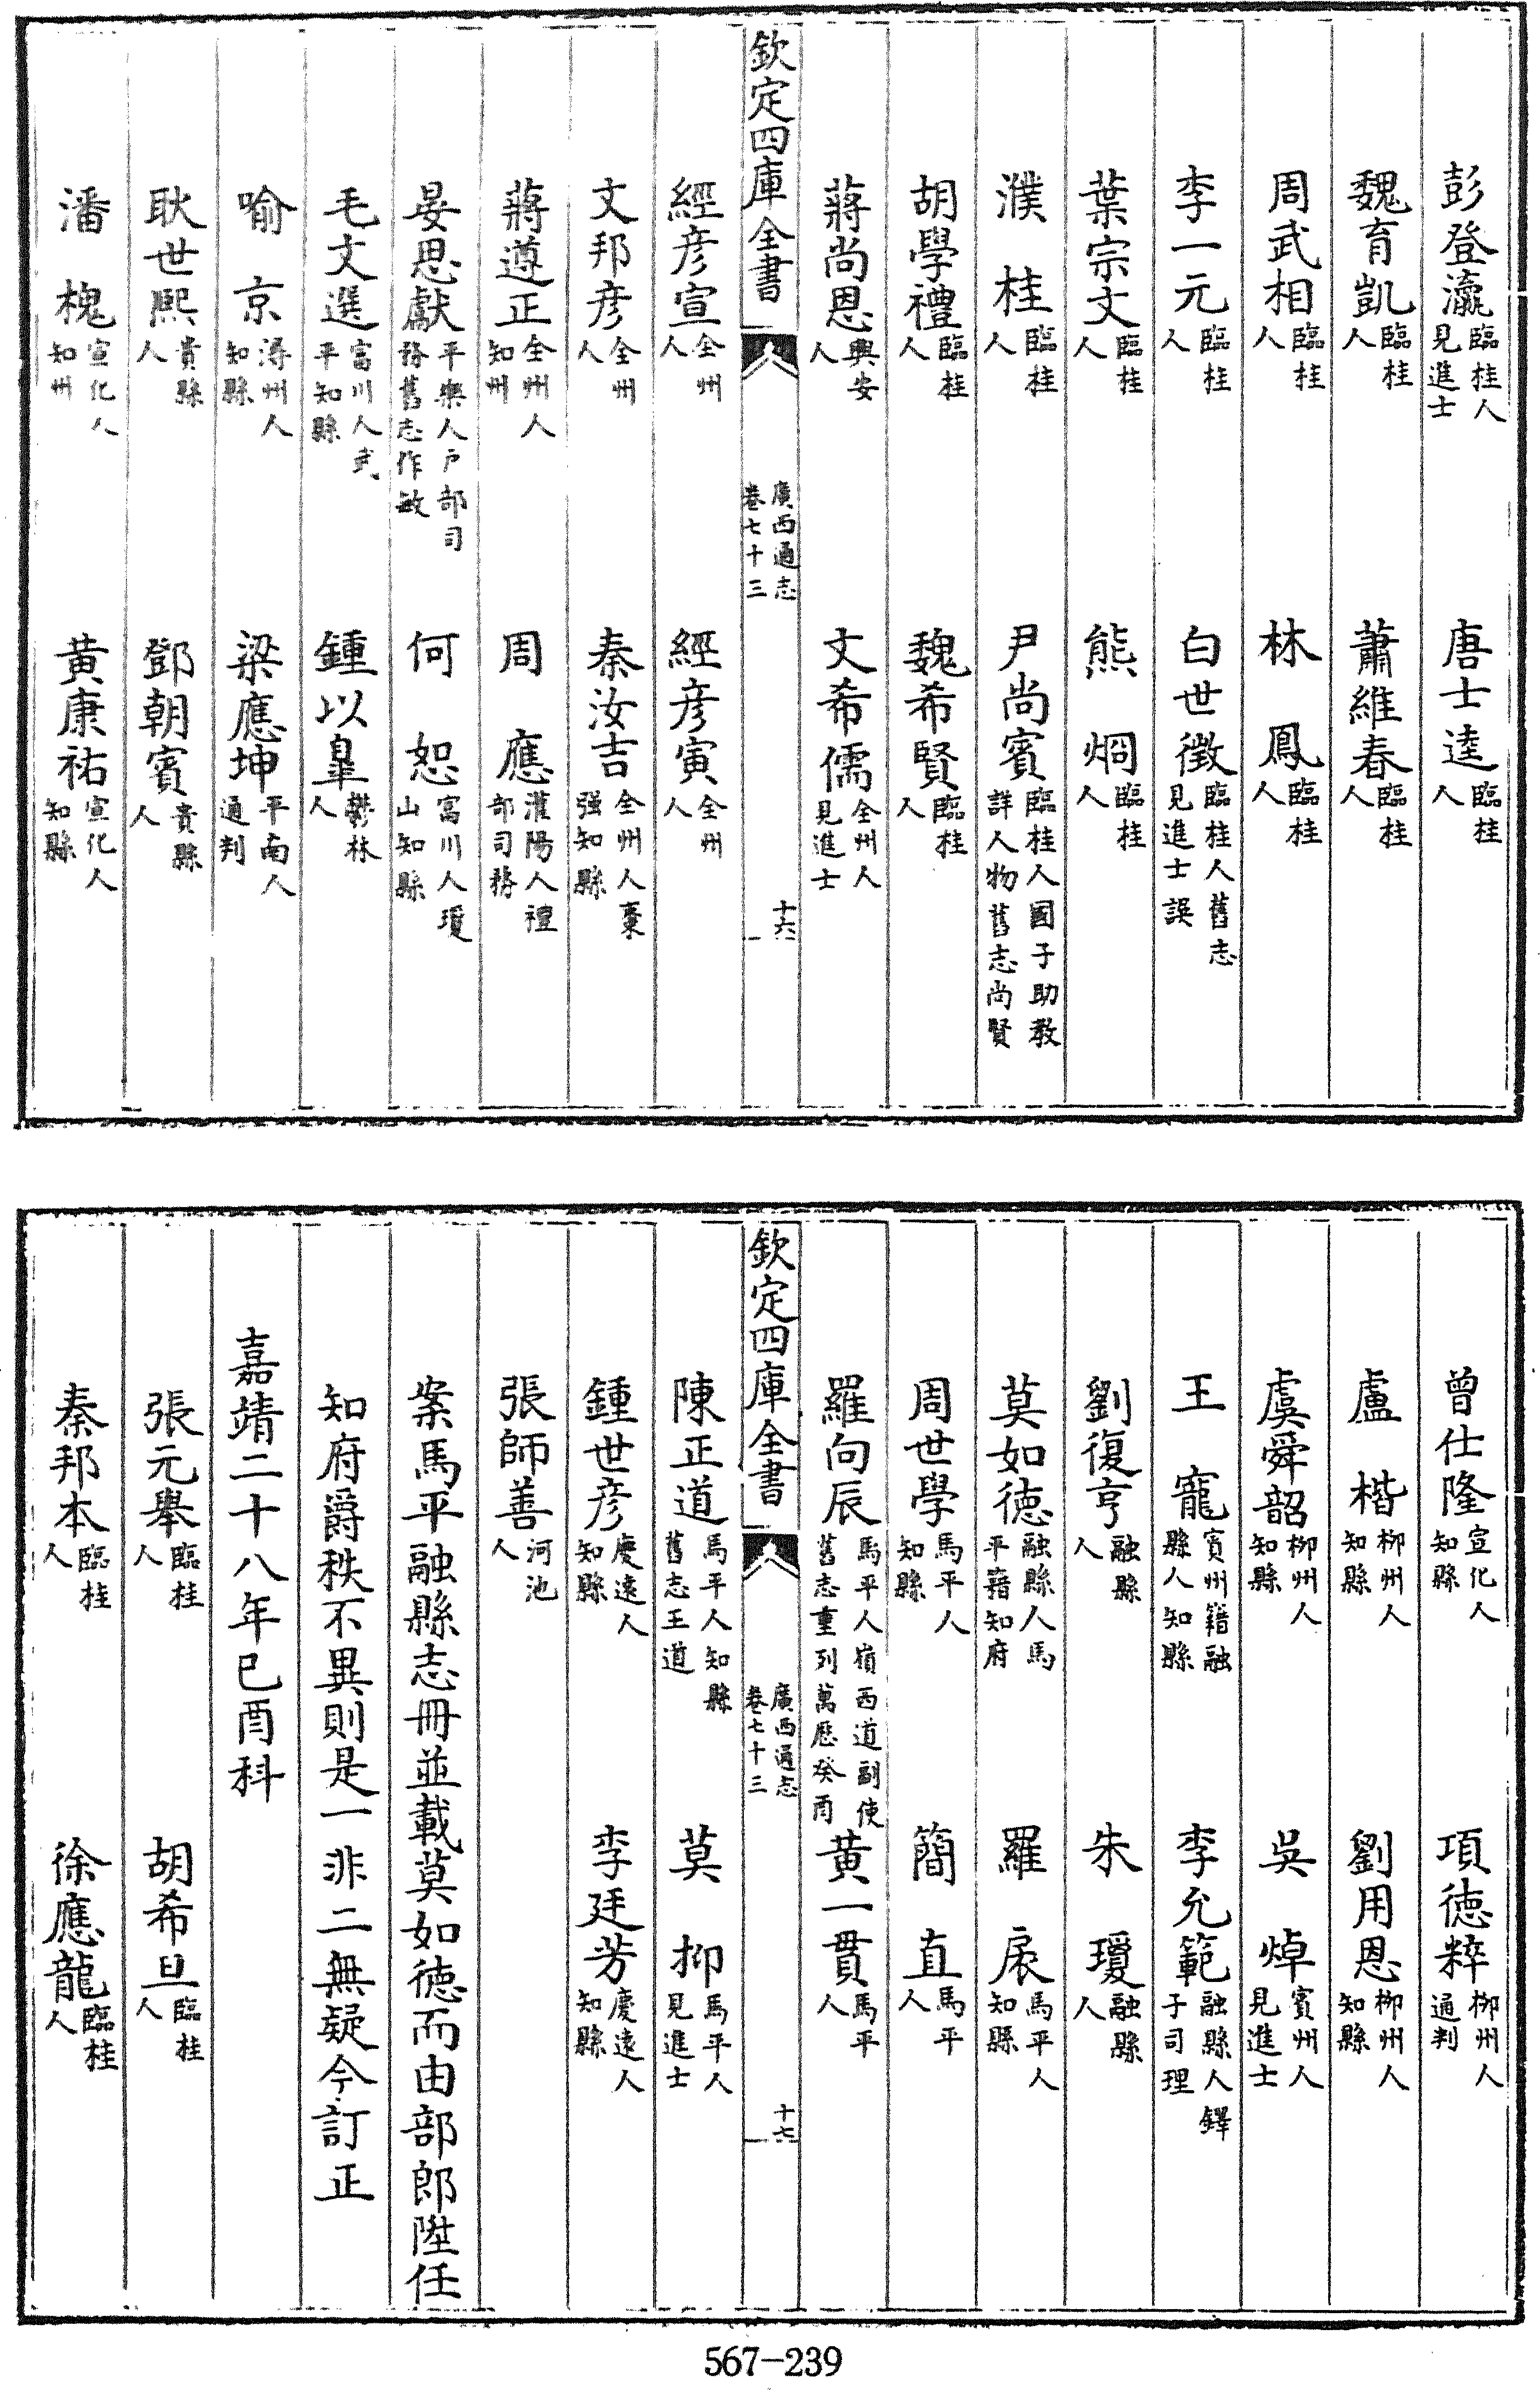 彭登瀛臨桂人見進士　唐士逵臨桂人
魏育凱臨桂人　蕭維春臨桂人
周武相臨桂人　林鳳臨桂人
李一元臨桂人　白世徵臨桂人舊志見進士誤
葉宗文臨桂人　熊烱臨桂人
濮桂臨桂人　尹尚賓臨桂人國子助教詳人物舊志尚賢
胡學禮臨桂人　魏希賢臨桂人
蔣尚恩興安人　文希儒全州人見進士
欽定四庫全書　廣西通志卷七十三　十六
經彦宣全州人　經彦寅全州人
文邦彦全州人　秦汝吉全州人棗强知縣
蔣遵正全州人知州　周應灌陽人禮部司務
晏思獻平樂人户部司務舊志作敏　何恕富川人瓊山知縣
毛文選富川人武平知縣　鍾以臯鬱林人
喻京潯州人知縣　梁應坤平南人通判
耿世熙貴縣人　鄧朝賓貴縣人
潘槐宣化人知州　黄康祐宣化人知縣
曾仕隆宣化人知縣　項徳粹柳州人通判
盧楷柳州人知縣　劉用恩柳州人知縣
虞舜韶柳州人知縣　吳焯賓州人見進士
王寵賓州籍融縣人知縣　李允範融縣人鐸子司理
劉復亨融縣人　朱瓊融縣人
莫如徳融縣人馬平籍知府　羅扆馬平人知縣
周世學馬平人知縣　簡直馬平人
羅向辰馬平人嶺西道副使舊志重列萬歴癸酉　黄一貫馬平人
欽定四庫全書　廣西通志卷七十三　十七
陳正道馬平人知縣舊志王道　莫抑馬平人見進士
鍾世彦慶逺人知縣　李廷芳慶逺人知縣
張師善河池人
案馬平融縣志冊並載莫如徳而由部郎陞任
知府爵秩不異則是一非二無疑今訂正
嘉靖二十八年已酉科
張元舉臨桂人　胡希旦臨桂人
秦邦本臨桂人　徐應龍臨桂人
567-239